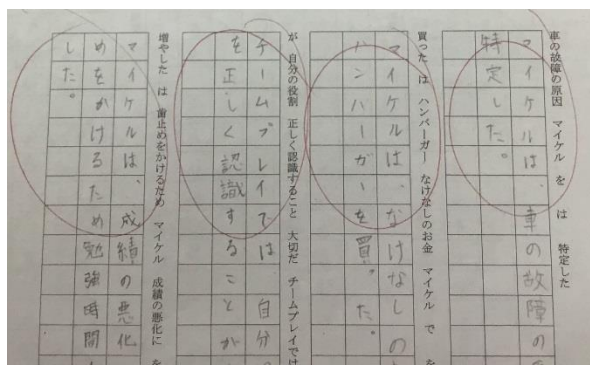 車の故障の原因 マイケル を は 特定した
マイケルは、車の故障の
特定した。
買った は ハンバーガー なけなしのお金 マイケル で を
マイケルは、なけなしの
ハンバーガーを買った。
が 自分の役割 正しく認識すること 大切だ チームプレイでは
チームプレイでは自分
を正しく認識することが
増やした は 歯止めをかけるため マイケル 成績の悪化に を
マイケルは、成績の悪化
めをかけるため勉強時間
した。